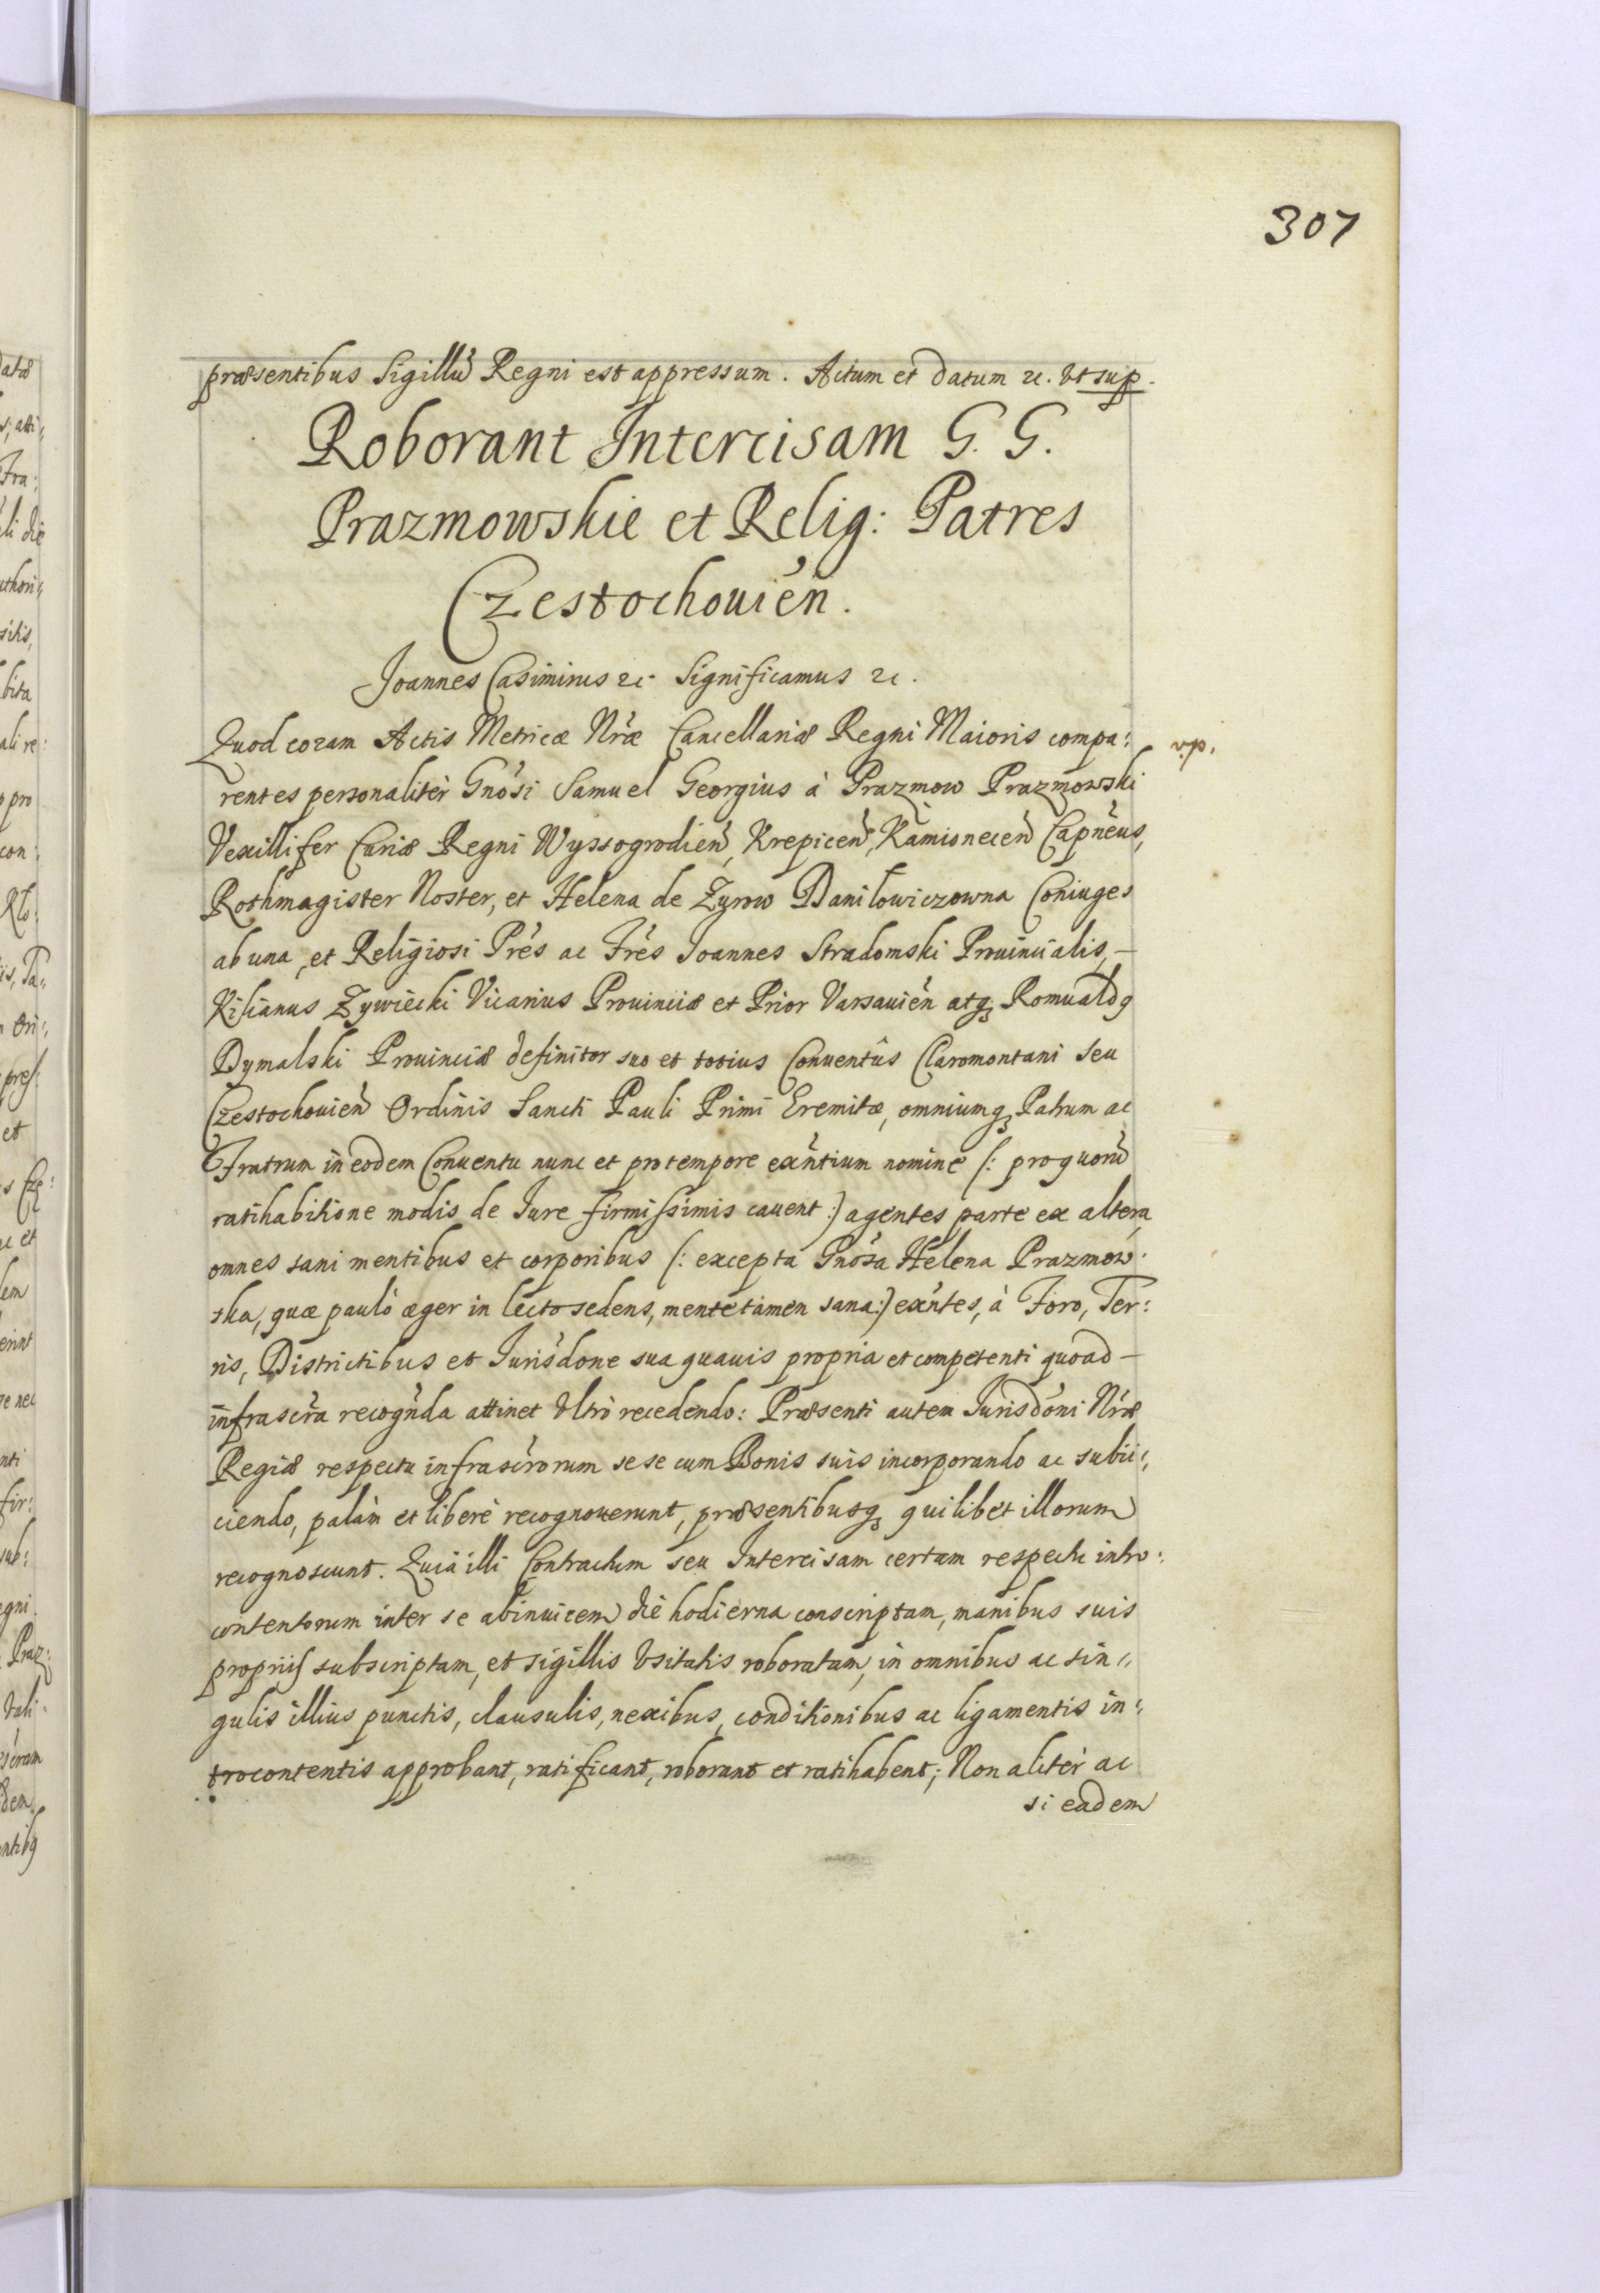 307
præsentibus Sigillũ Regni est appressum. Actum et datum &c. vt sup.
Roborant Intercisam G. G.
Prazmowskie et Relig: Patres
Czestochouień.
Joannes Casimirus &c. Significamus &c.
Quod coram Actis Metricæ Nræ Cancellariæ Regni Maioris compa:
v.p.
rentes personalitèr Gnósi Samuel Georgius à Prazmow Prazmowski
Vexillifer Curiæ Regni Wyssogrodień, Krepiceń, Kamioneceń Capnéus,
Rothmagister Noster, et Helena de Zyrow Daniłowiczowna Coniuges
ab una, et Religiosi Prés ac Frés Joannes Stradomski Prouincialis, –
Kilianus Zywiecki Vicarius Prouinciæ et Prior Varsauień atq₃ Romualdꝯ
Dymalski Prouinciæ definitor suo et totius Conuentûs Claromontani seu
Czestochouień Ordinis Sancti Pauli Primi Eremitæ, omniumq₃ Patrum ac
Fratrum in eodem Conuentu nunc et protempore exńtium nomine (: pro quorũ
ratihabitione modis de Jure firmissimis cauent :) agentes parte ex altera
omnes sani mentibus et corporibus (: excepta Gnósa Helena Prazmow:
ska, quæ pauló æger in lecto sedens, mente tamen sana :) exńtes, à Foro, Ter:
ris, Districtibus et Jurisdóne sua quauis propria et competenti quoad –
infrascŕa recogńda attinet vltrò recedendo: Præsenti autem Jurisdóni Nŕæ
Regiæ respectu infrascŕorum sese cum Bonis suis incorporando ac subii:
ciendo, palàm et liberè recognouerunt, præsentibusq₃ quilibet illorum
recognoscunt. Quia illi Contractum seu Intercisam certam respectu intro:
contentorum inter se abinuicem die hodierna conscriptam, manibus suis
propriis subscriptam, et sigillis vsitatis roboratam, in omnibus ac sin:
gulis illius punctis, clausulis, nexibus, conditionibus ac ligamentis in:
trocontentis approbant, ratificant, roborant et ratihabent; Non alitèr ac
si eadem